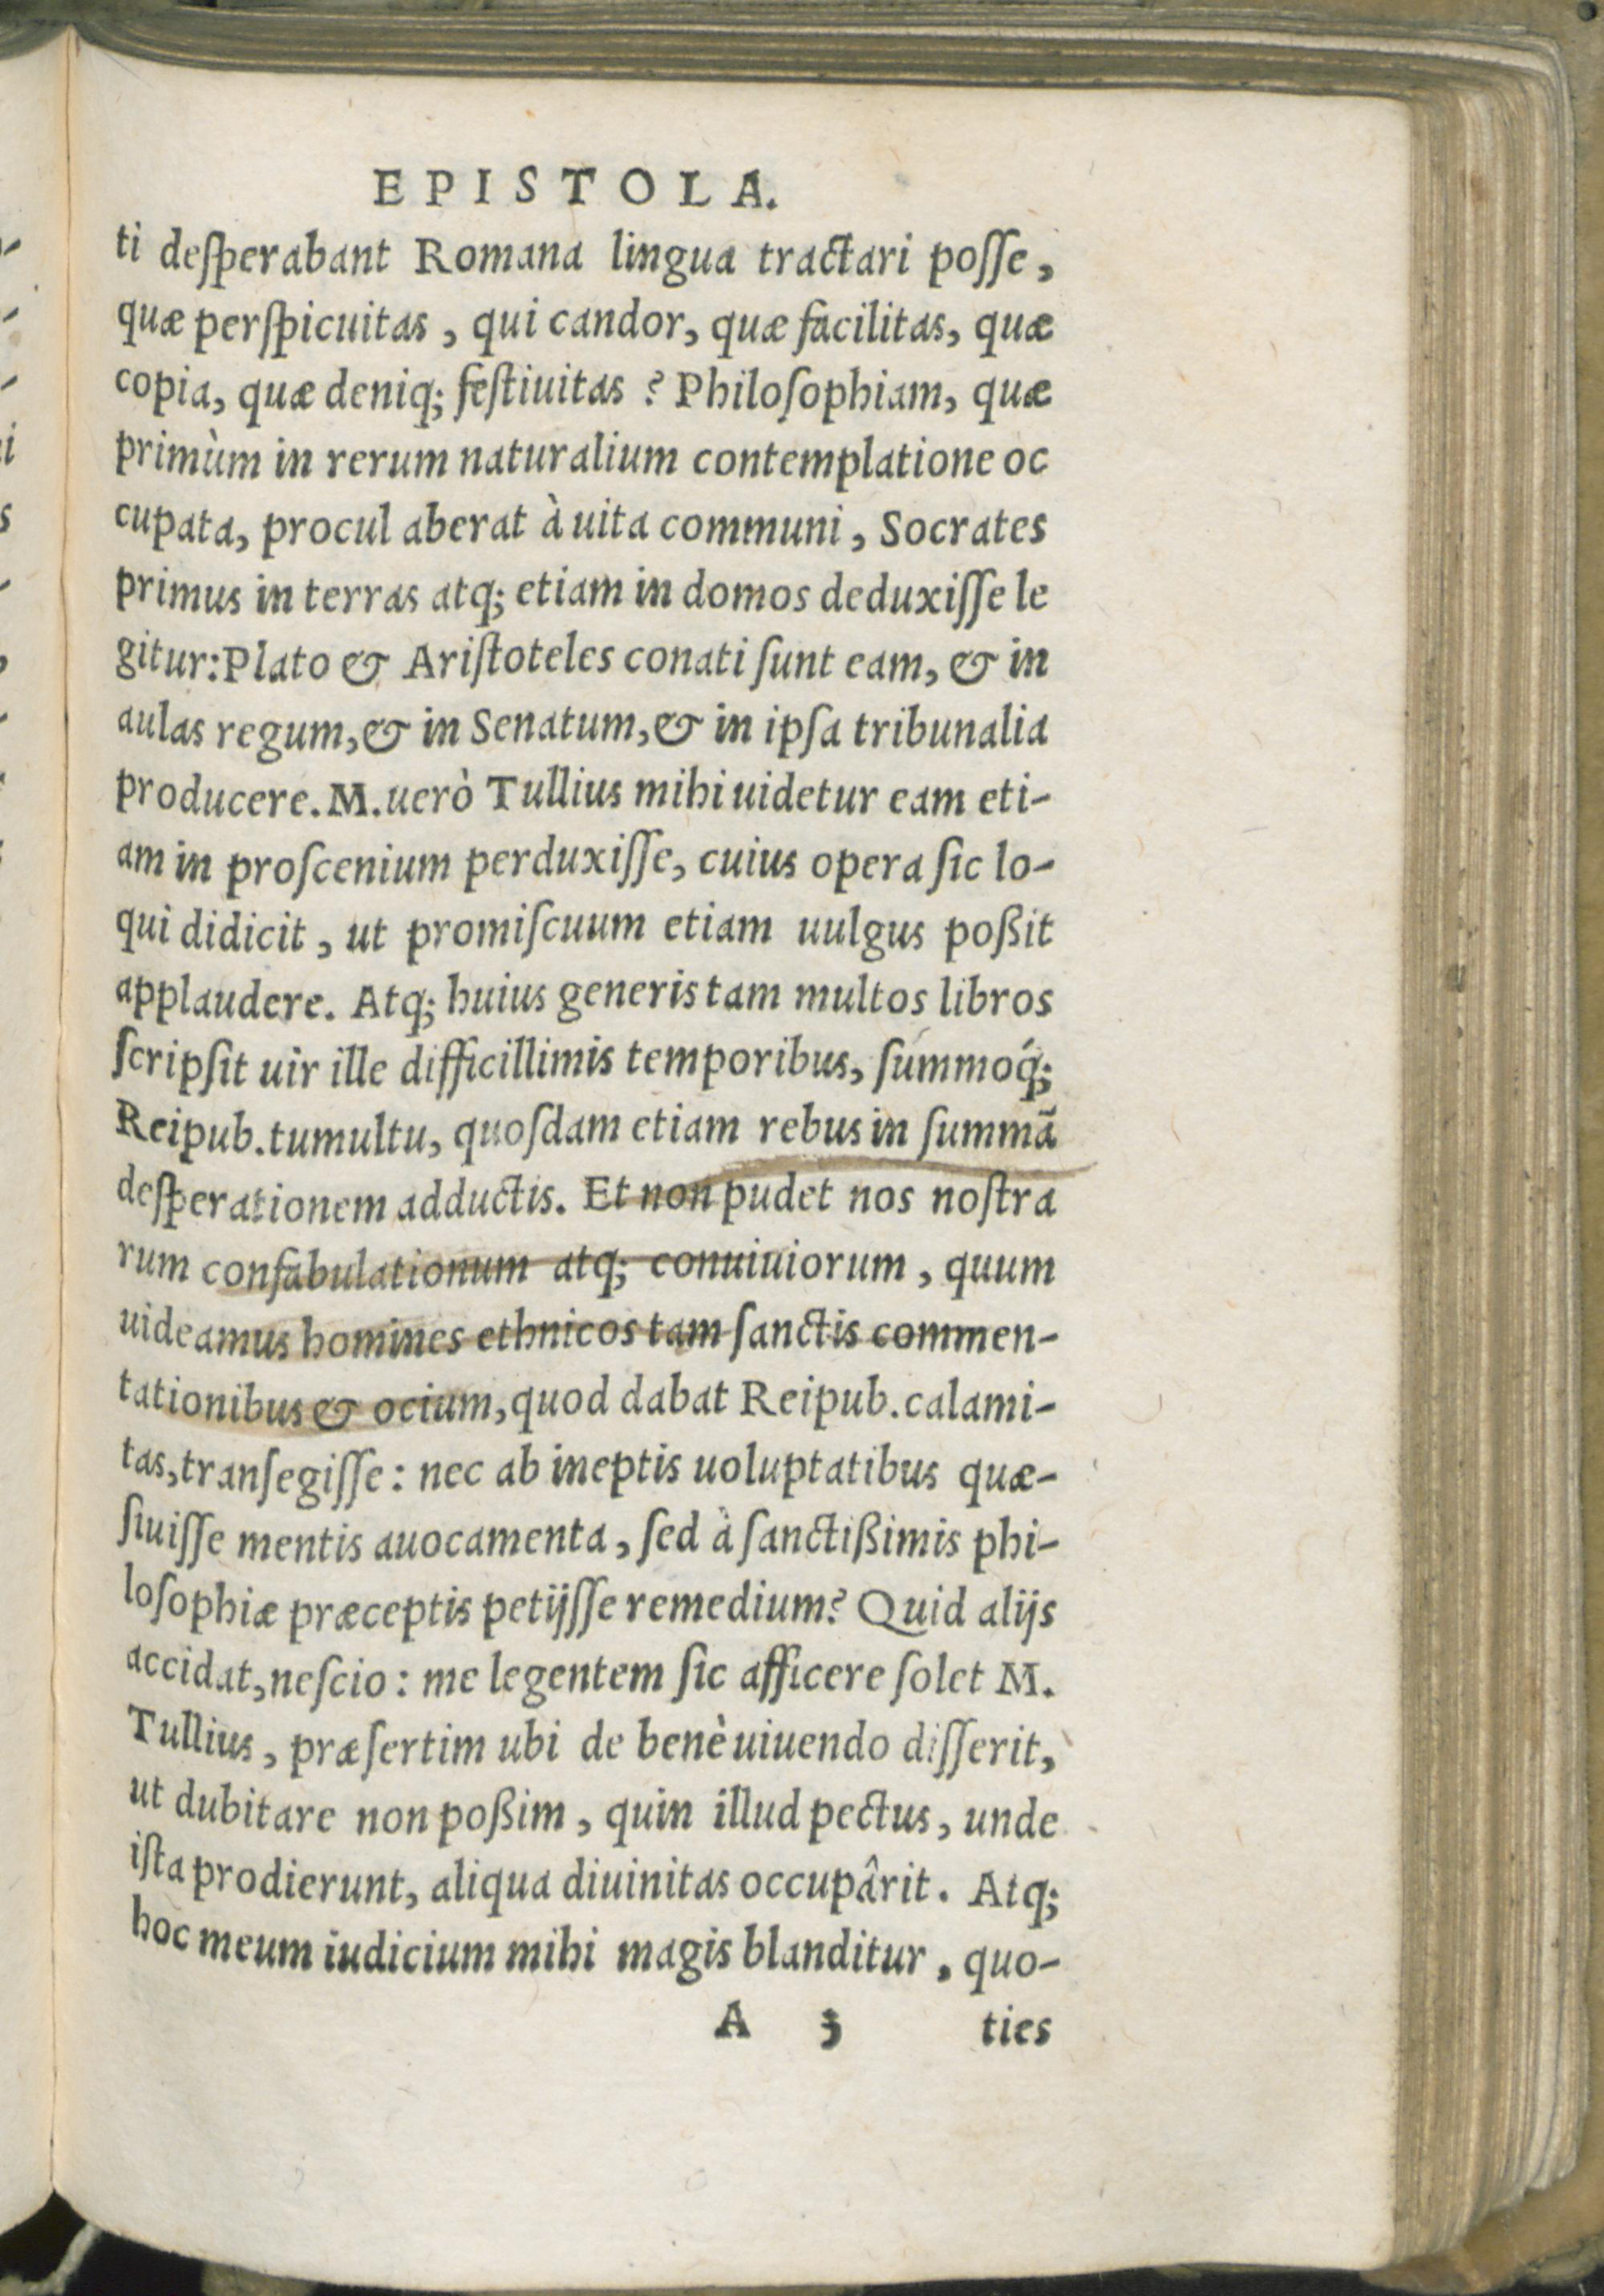 EPISTOLA.
ti desperabant Romana lingua tractari posse,
quæ perspicuitas, qui candor, quæ facilitas, quæ
copia, quæ deniq; festiuitas? Philosophiam, quæ
primùm in rerum naturalium contemplatione oc
cupata, procul aberat à uita communi, Socrates
primus in terras atq; etiam in domos deduxisse le
gitur: Plato & Aristoteles conati sunt eam, & in
aulas regum, & in Senatum, & in ipsa tribunalia
producere. M. uerò Tullius mihi uidetur eam eti-
am in proscenium perduxisse, cuius opera sic lo-
qui didicit, ut promiscuum etiam uulgus poßit
applaudere. Atq; huius generis tam multos libros
scripsit uir ille difficillimis temporibus, summoq́;
Reipub. tumultu, quosdam etiam rebus in summã
desperationem adductis. Et non pudet nos nostra
rum confabulationum atq; conuiuiorum, quum
uideamus homines ethnicos tam sanctis commen-
tationibus & ocium, quod dabat Reipub. calami-
tas, transegisse: nec ab ineptis uoluptatibus quæ-
siuisse mentis auocamenta, sed à sanctißimis phi-
losophiæ præceptis petijsse remedium? Quid alijs
accidat, nescio: me legentem sic afficere solet M.
Tullius, præsertim ubi de benè uiuendo disserit,
ut dubitare non poßim, quin illud pectus, unde
ista prodierunt, aliqua diuinitas occupârit. Atq;
hoc meum iudicium mihi magis blanditur, quo-
A 3 ties